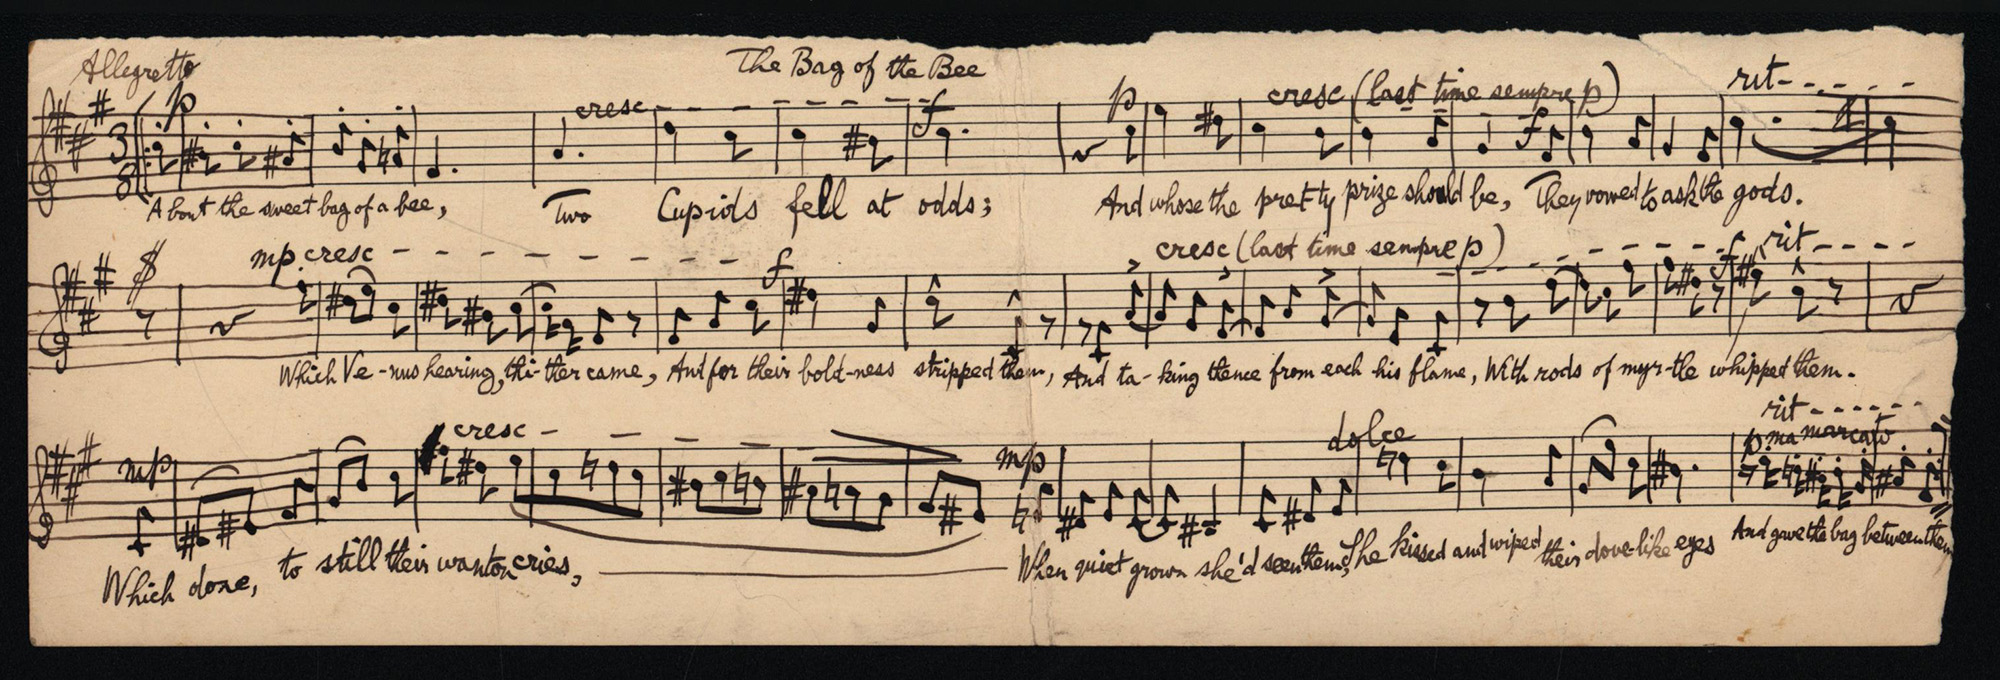 Allegretto
The Bag of the Bee
p cresc f p cresc (last time sempre p) f rit
3
8
About the sweet bag of a bee, Two Cupids fell at odds; And whose the pret-ty prize should be, They vowed to ask the gods.
mp cresc f cresc (last time sempre p) f rit
Which Ve-nus hearing, thi-ther came, And for their bold-ness stripped them, And ta-king thence from each his flame, With rods of myr-tle whipped them.
mp cresc mp dolce rit
p ma marcato
Which done, to still their wanton cries, When quiet grown she'd seen them, She kissed and wiped their dove-like eyes And gave the bag between them